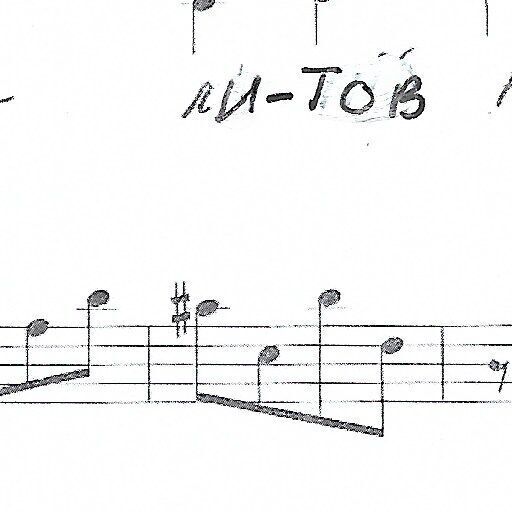 ЛИ-ТОВ